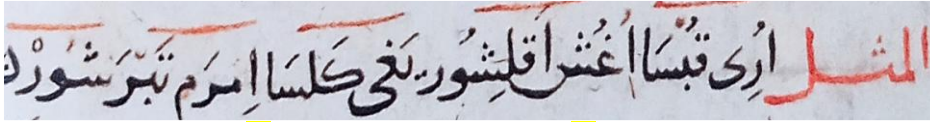 المثل اُرِى قُبّسَا اغُشْ اَقلِشُور يَغَى كَلسَا اِمرَم تَبّرَ شُورْك